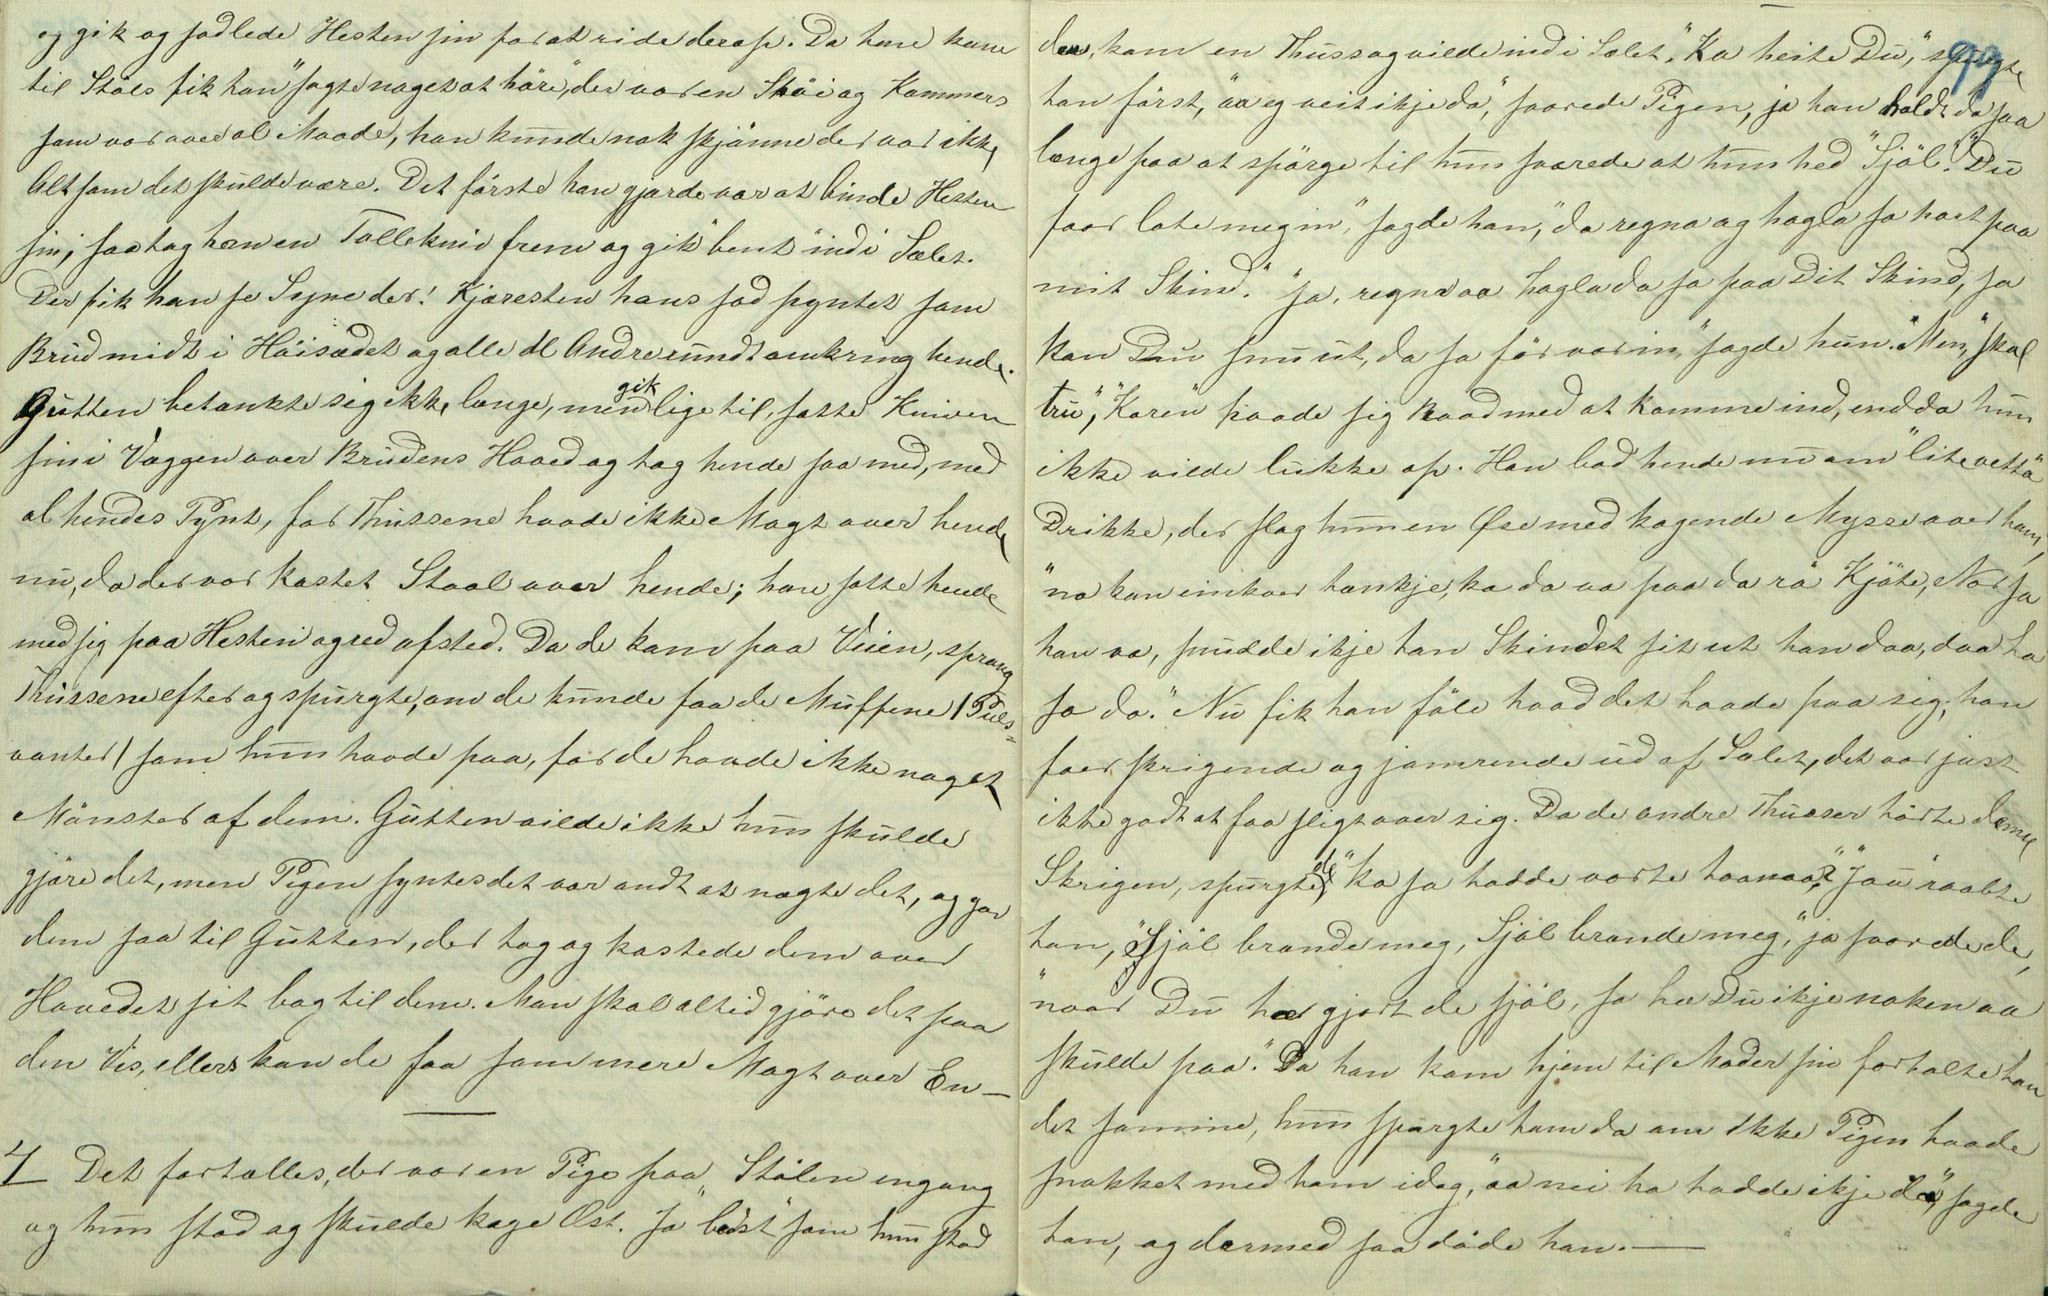 og gik og sadlede Hesten sin for at ride derop. Da han kom
til Støls fik han "sagte noget at høre", der var en Støi og Kommers
som var over al Maade, han kunde nok skjønne der var ikke
Alt som det skulde være. Det første han gjorde var at binde Hesten
sin; saa tog han en Tollekniv frem og gik "bent" ind i Sælet.
Der fik han se Syner der! Kjæresten hans sad pyntet som
Brud midt i Høisædet og alle de Andre rundt omkring hende.
Gutten betænkte sig ikke længe, men gik lige til, satte Kniven
sin i Væggen over Brudens Hoved og tog hende saa med, med
al hendes Pynt, for Thussene havde ikke Magt over hende
nu, da der var kastet Staal over hende; han satte hende
med sig paa Hesten og red afsted. Da de kom paa Veien, sprang
Thussene efter og spurgte, om de kunde faa de Muffene / Puls=
vanter / som hun havde paa, for de havde ikke noget
Mønster af dem. Gutten vilde ikke hun skulde
gjøre det, men Pigen syntes det var ondt at nægte det, og gav
dem saa til Gutten, der tog og kastede dem over
Hovedet sit bag til dem. Man skal altid gjøre det paa
den Vis, ellers kan de faa som mere Magt over En —
4 Det fortælles, der var en Pige paa Stølen engang
og hun stod og skulde koge Ost. Ja "bedst" som hun stod
99
der, kom en Thuss og vilde ind i Sælet. "Ka heite Du," spurgte
han først, "aa eg veit ikje da", svarede Pigen, ja han holdt da saa
længe paa at spørge til hun svarede at hun hed "Sjøl". "Du
faar late meg in," sagde han, "da regna og hagla so hart paa
mit Skind." "Ja, regna aa hagla da so paa Dit Skind, so
kan Du snu ut, da so før var in," sagde hun. "Men," skal
tru", "Karen" havde sig Raad med at komme ind, endda hun
ikke vilde lukke op. Han bad hende nu om "lite vetta"
Drikke, der slog hun en Øse med kogende Mysse over ham,
"no kan einkver tænkje, ka da va paa da rå Kjøte, Nor so
han va, snudde ikje han Skindet sit ut han daa, daa ha
so da." Nu fik han føle hvad det havde paa sig; han
foer skrigende og jamrende ud af Sælet, det var just
ikke godt at faa sligt over sig. Da de andre Thusser hørte denne
Skrigen, spurgte de "ka so hadde vorte haanaa?" "Jau" raabte
han, "Sjøl brande meg, Sjøl brande meg," ja svarede de,
"naar Du har gjort de sjøl, so hæ Du ikje noken aa
skulde paa." Da han kom hjem til Moder sin fortalte han
det samme, hun spurgte ham da om ikke Pigen havde
snakket med ham idag, "aa nei ho hadde ikje da," sagde
han, og dermed saa døde han. —